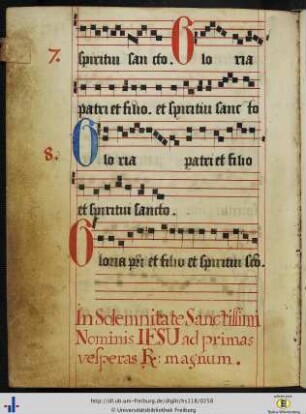 7. spiritui san cto. Glo ria
patri et filio. et spiritui sanc to
8. Glo ria patri et filio
et spiritui sancto.
Gloria pri et filio et spiritui sco.
In Solemnitate Sanctissimi
Nominis IESU ad primas
vesperas R: magnum.
http://dl.ub.uni-freiburg.de/diglit/hs118/0258
© Universitätsbibliothek Freiburg